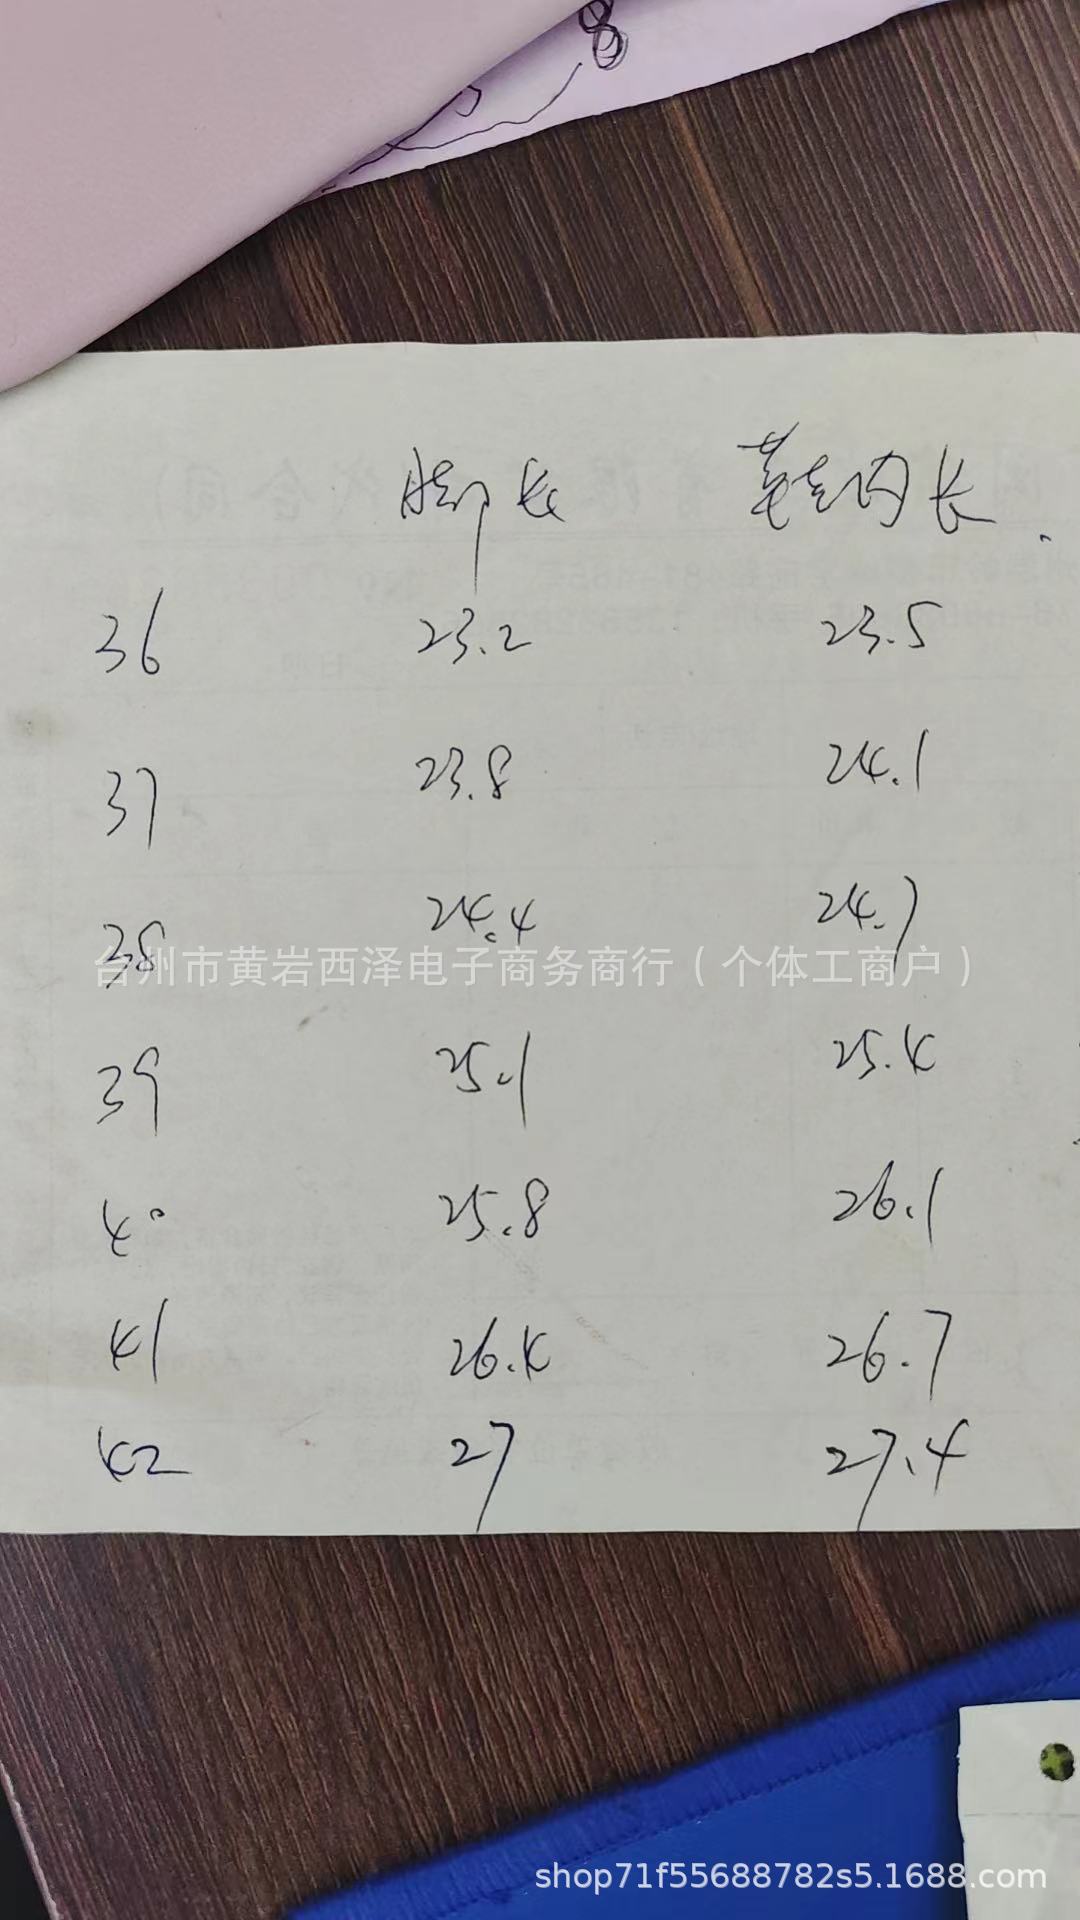 8
脚长 鞋内长
36 23.2 23.5
37 23.8 24.1
38 24.4 24.7
台州市黄岩西泽电子商务商行（个体工商户）
39 25.1 25.4
40 25.8 26.1
41 26.4 26.7
42 27 27.4
shop71f55688782s5.1688.com